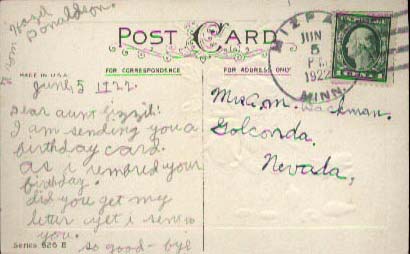 from Hazel
Donaldson.
POST CARD
MIZPAH
JUN
5
P.M.
1922
MINN.
MADE IN U.S.A.
FOR CORRESPONDENCE
FOR ADDRESS ONLY
June, 5 1922.
Dear aunt Lizzie:
I am sending you a
birthday card.
as i rembred your
birthday.
did you get my
leter yet i send to
you.
so good-bye
Series 626 E
Mrs. G.M. Wackman.
Golconda,
Nevada,